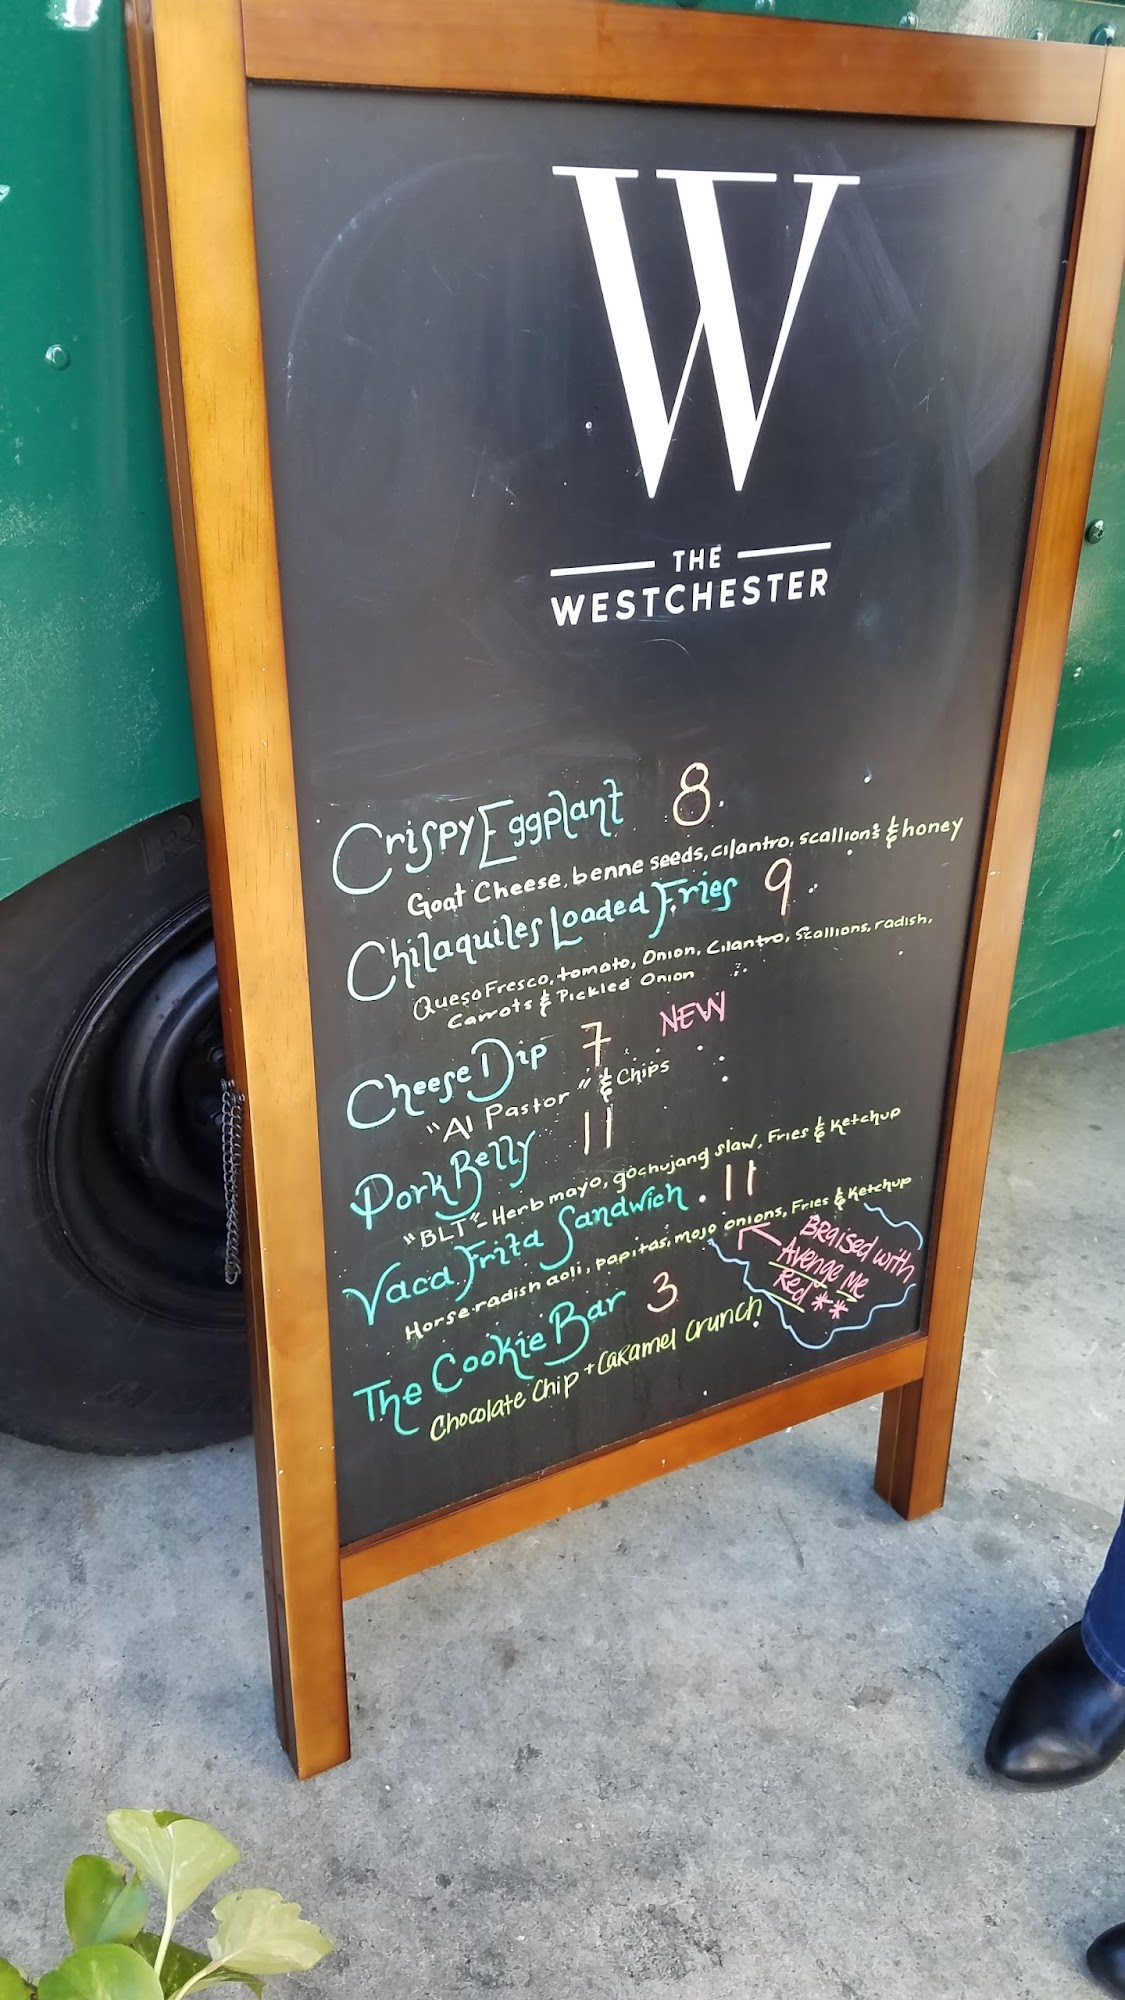 W
THE
WESTCHESTER
Crispy Eggplant 8
Goat Cheese, benne seeds, cilantro, scallions & honey
Chilaquiles Loaded Fries 9
Queso Fresco, tomato, Onion, Cilantro, Scallions, radish,
Carrots & Pickled Onion
Cheese Dip 7 NEW
"Al Pastor" & Chips
Pork Belly 11
"BLT" - Herb mayo, gochujang slaw, Fries & Ketchup
Vaca Frita Sandwich . 11
Horse-radish aoli, papitas, mojo onions, Fries & Ketchup
BRaised with
Avenge Me
Red **
The Cookie Bar 3
Chocolate Chip + Caramel Crunch